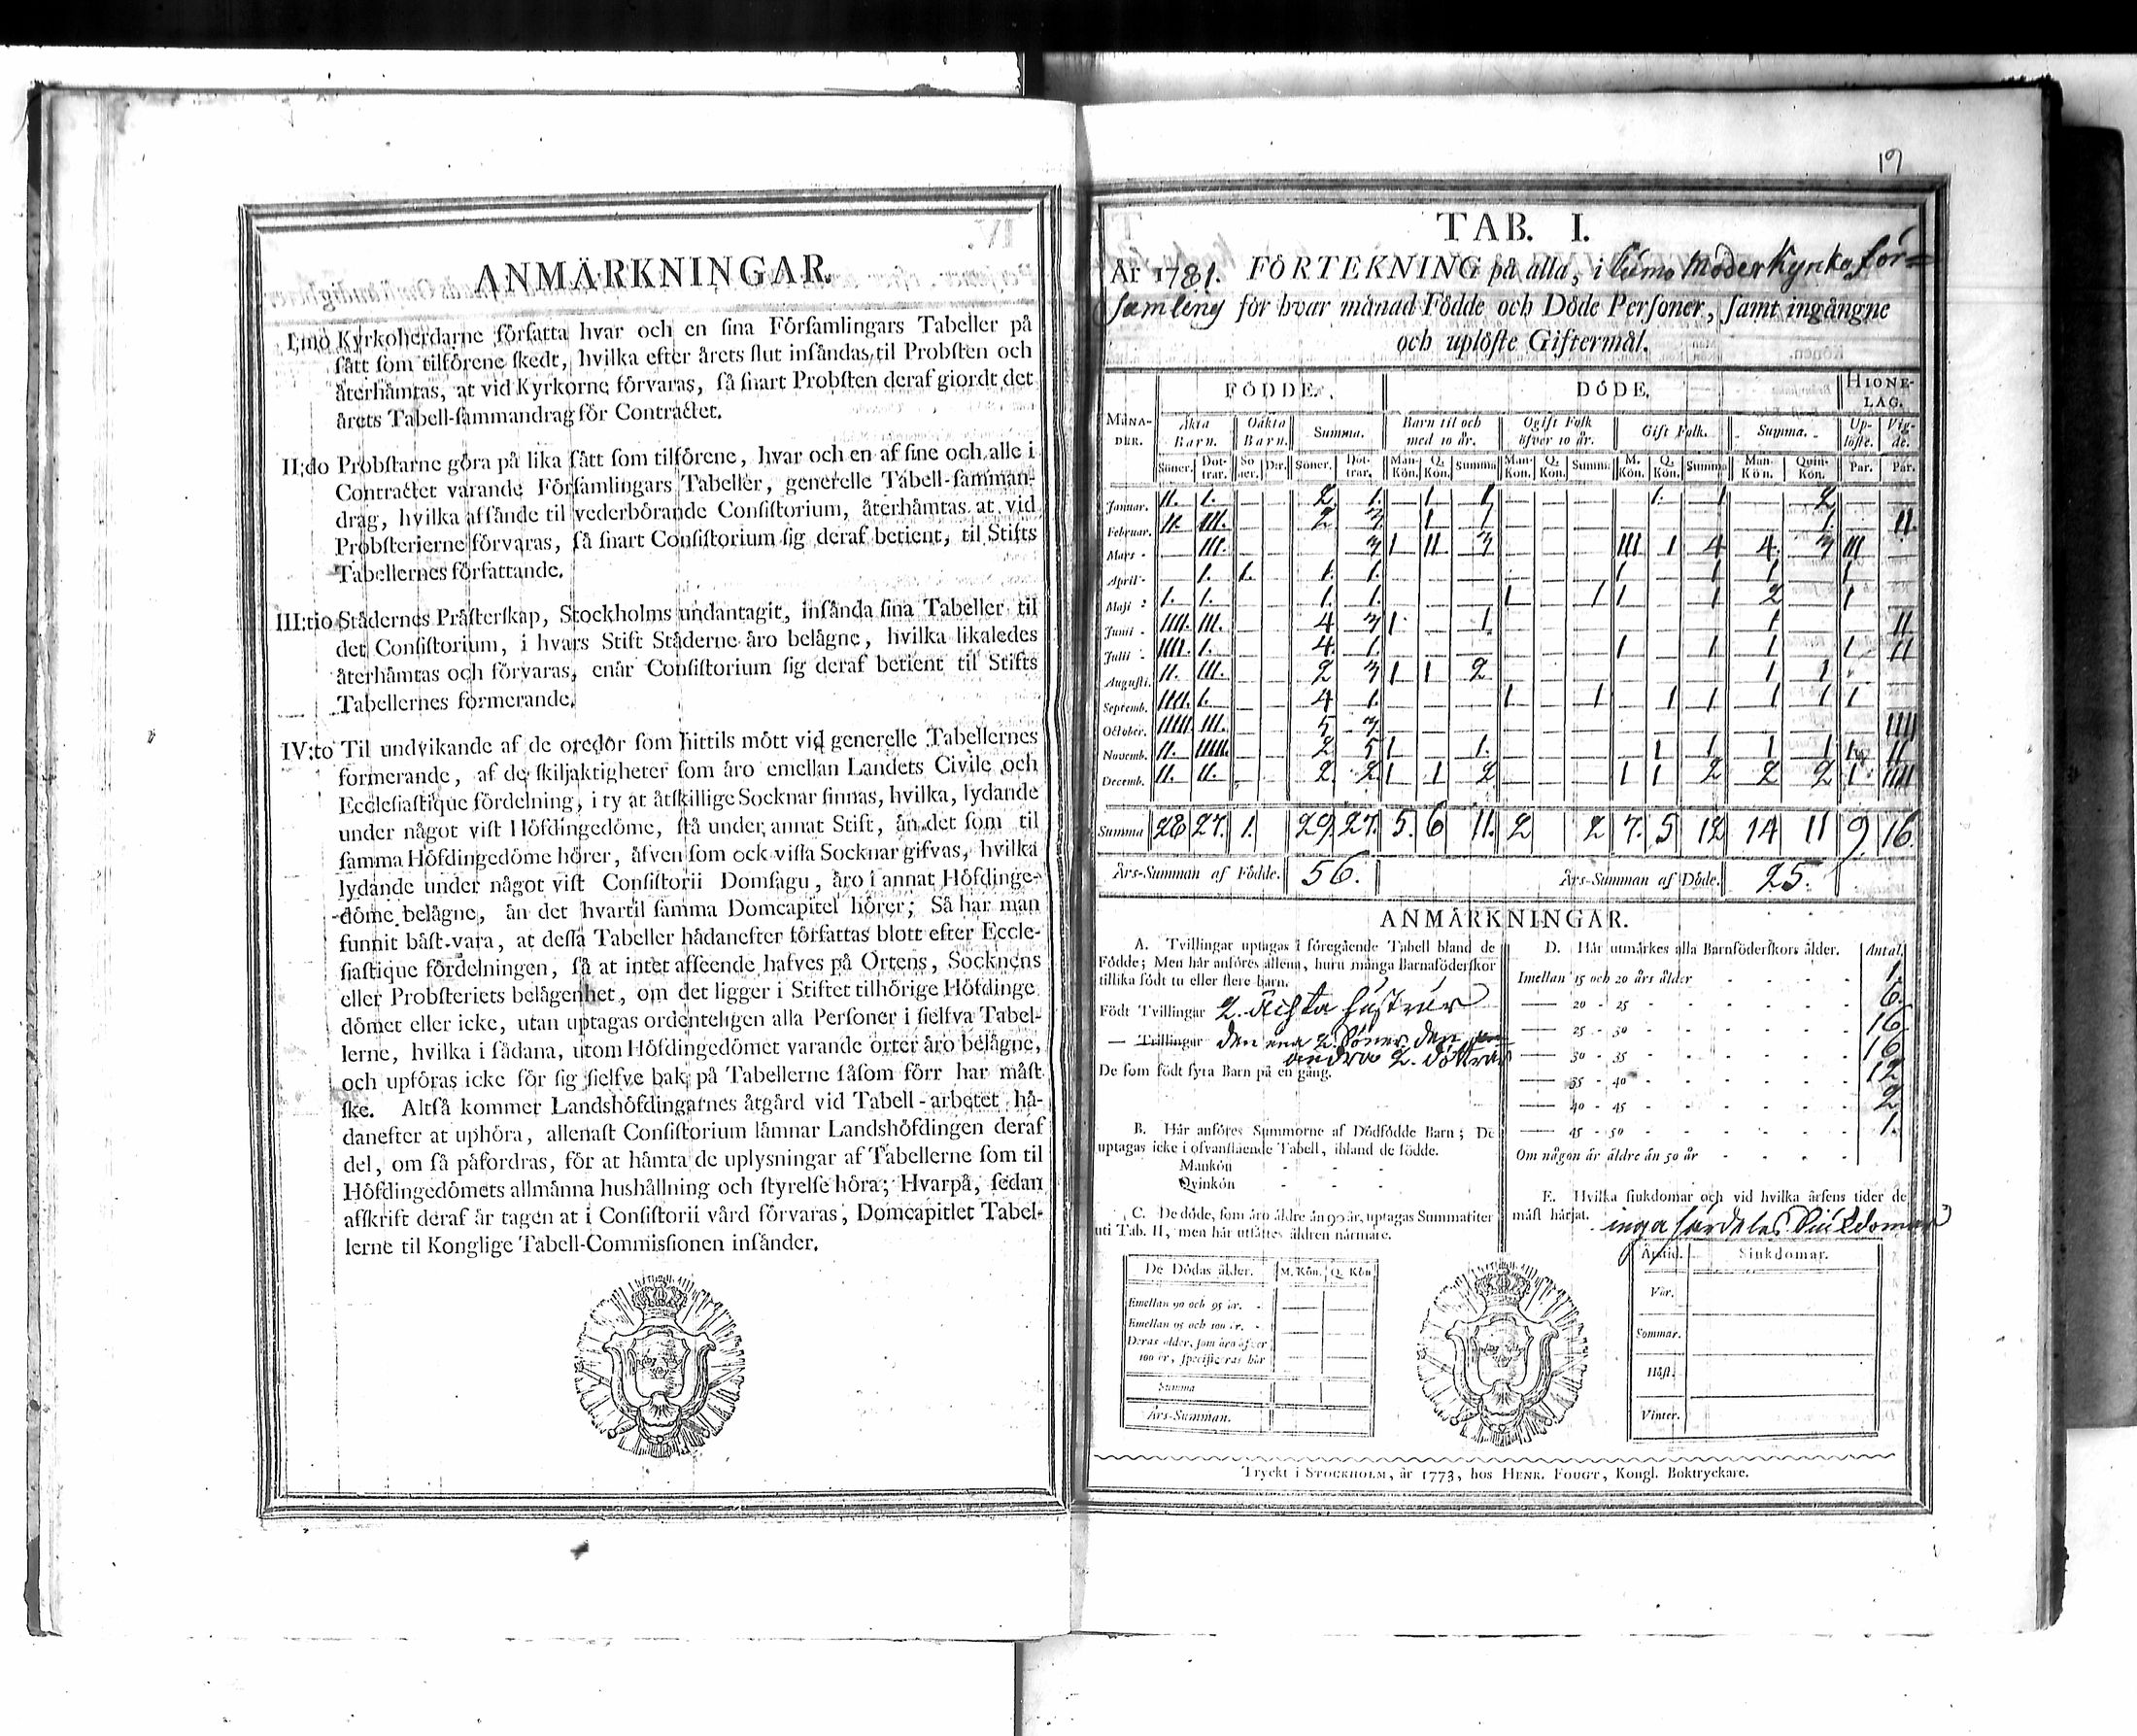 ANMÄRKNINGAR.
I:mo Kyrkoherdarne författa hvar och en sina Församlingars Tabeller på
sått som tilförene skedt, hvilka efter årets slut insåndas til Probsten och
återhämtas, at vid Kyrkorne förvaras, så snart Probsten deraf giordt det
årets Tabell-sammandrag för Contractet.
II:do Probstarne göra på lika sått som tilförene, hvar och en af sine och alle i
Contractet varande Församlingars Tabeller, generelle Tabell-samman-
drag, hvilka afsånde til vederbörande Consistorium, återhåmtas at vid
Probsterierne förvaras, så snart Consistorium sig deraf betient, til Stifts
Tabellernes författande.
III:tio Städernes Pråsterskap, Stockholms undantagit, insånda sina Tabeller til
det Consistorium, i hvars Stift Städerne åro belågne, hvilka likaledes
återhåmtas och förvaras, enär Consistorium sig deraf betient til Stifts
Tabellernes formerande.
IV:to Til undvikande af de oredor som hittils mött vid generelle Tabellernes
formerande, af de skiljaktigheter som åro emellan Landets Civile och
Ecclesiastique fördelning, i ty at åtskillige Socknar finnas, hvilka, lydande
under något vist Höfdingedöme, stå under annat Stift, ån det som til
samma Höfdingedöme hörer, åfven som ock vissa Socknar gifvas, hvilka
lydande under något vist Consistorii Domsagu, åro i annat Höfdinge-
döme belågne, ån det hvartil samma Domcapitel hörer; Så har man
funnit båst vara, at dessa Tabeller hådanefter författas blott efter Eccle-
siastique fördelningen, så at intet afseende hafves på Ortens, Socknens
eller Probsteriets belågenhet, om det ligger i Stiftet tilhörige Höfdinge
dömet eller icke, utan uptagas ordenteligen alla Personer i sielfva Tabel-
lerne, hvilka i sådana, utom Höfdingedömet varande orter åro belågne,
och upföras icke för sig sielfve bak på Tabellerne såsom förr har måst
ske. Altså kommer Landshöfdingarnes åtgård vid Tabell-arbetet hå-
danefter at uphöra, allenast Consistorium låmnar Landshöfdingen deraf
del, om så påfordras, för at håmta de uplysningar af Tabellerne som til
Höfdingedömets allmånna hushållning och styrelse höra; Hvarpå, sedan
afskrift deraf år tagen at i Consistorii vård förvaras, Domcapitlet Tabel-
lerne til Konglige Tabell-Commissionen insånder.
TAB. I.
År 1781. FÖRTEKNING på alla, i Kumo Moder Kyrko för=
samling för hvar månad Födde och Döde Personer, samt ingångne
och uplöste Giftermål.
FÖDDE. DÖDE. HIONE-LAG.
MÅNA-DER. Äkta Barn. Oäkta Barn. Summa. Barn til och med 10 år. Ogift Folk öfver 10 år. Gift Folk. Summa. Up-löste. Vig-de.
Söner. Döt-trar. Sö ner. Dtr. Söner. Döt-trar. Man-Kön. Q. Kön. Summa Man-Kön. Q. Kön. Summa M. Kön. Q. Kön. Summa Man-Kön. Quin-Kön. Par. Par.
Januar. II. I. 2. 1. 1 1 1. 1 2
Februar. II. III. 2 3. 1 1 1. II.
Mars III. 3 1 II 3 III 1 4 4. 3 III
April 1. 1. 1. 1. 1 1 1 1
Maji 1. 1. 1. 1. 1 1 1 1 2 1
Junii IIII. III. 4 3 1 1 1 II
Julii IIII. 1. 4. 1. 1 1 1 1 II
Augusti. II. III. 2 3 1 1 2 1 1
Septemb. IIII. 1. 4 1. 1 1 1 1 1 1 1
October. IIIII. III. 5 3 IIII
Novemb. II. IIIII. 2 5 1 1. 1 1 1 1 1 II
Decemb. II. II. 2. 2 1 1 2 1 1 2 2 2 1.
Summa 28 27. 1. 29 27. 5. 6 11. 2 2 7. 5 12 14 11 9. 16.
Års-Summan af Födde. 56. Års-Summan af Döde. 25.
ANMÄRKNINGAR.
A. Tvillingar uptagas i föregående Tabell bland de
Födde; Men här anföres allena, huru många Barnaföderskor
tillika födt tu eller flere barn.
Födt Tvillingar 2.Ächta hustrur
— Trillingar den ena 2. Söner. den
andra 2. döttrar
De som födt fyra Barn på en gång.
B. Här anföres Summorne af Dödfödde Barn; De
uptagas icke i ofvanstående Tabell, ibland de födde.
Mankön - - -
Qvinkön - - -
C. De döde, som åro äldre än 90 år, uptagas Summatiter
uti Tab. II, men här utsättes åldren närmare.
De Dödas ålder. M. Kön. Q. Kön
Emellan 90 och 95 år. -
Emellan 95 och 100 år. -
Deras ålder, som åro öfver
100 år, specificeras här
Summa
Års-Summan.
D. Här utmärkes alla Barnföderskors ålder. Antal.
Imellan 15 och 20 års ålder 1.
— 20 - 25 6.
— 25 - 30 16
— 30 - 35 16
— 35 - 40 12
— 40 - 45 2.
— 45 - 50 1.
Om någon är äldre än 50 år
E. Hvilka siukdomar och vid hvilka årsens tider de
måst härjat. inga särdeles Siukdomar
Årstid. Siukdomar.
Vår.
Sommar.
Höst.
Vinter.
Tryckt i STOCKHOLM, år 1773, hos HENR. FOUGT, Kongl. Boktryckare.